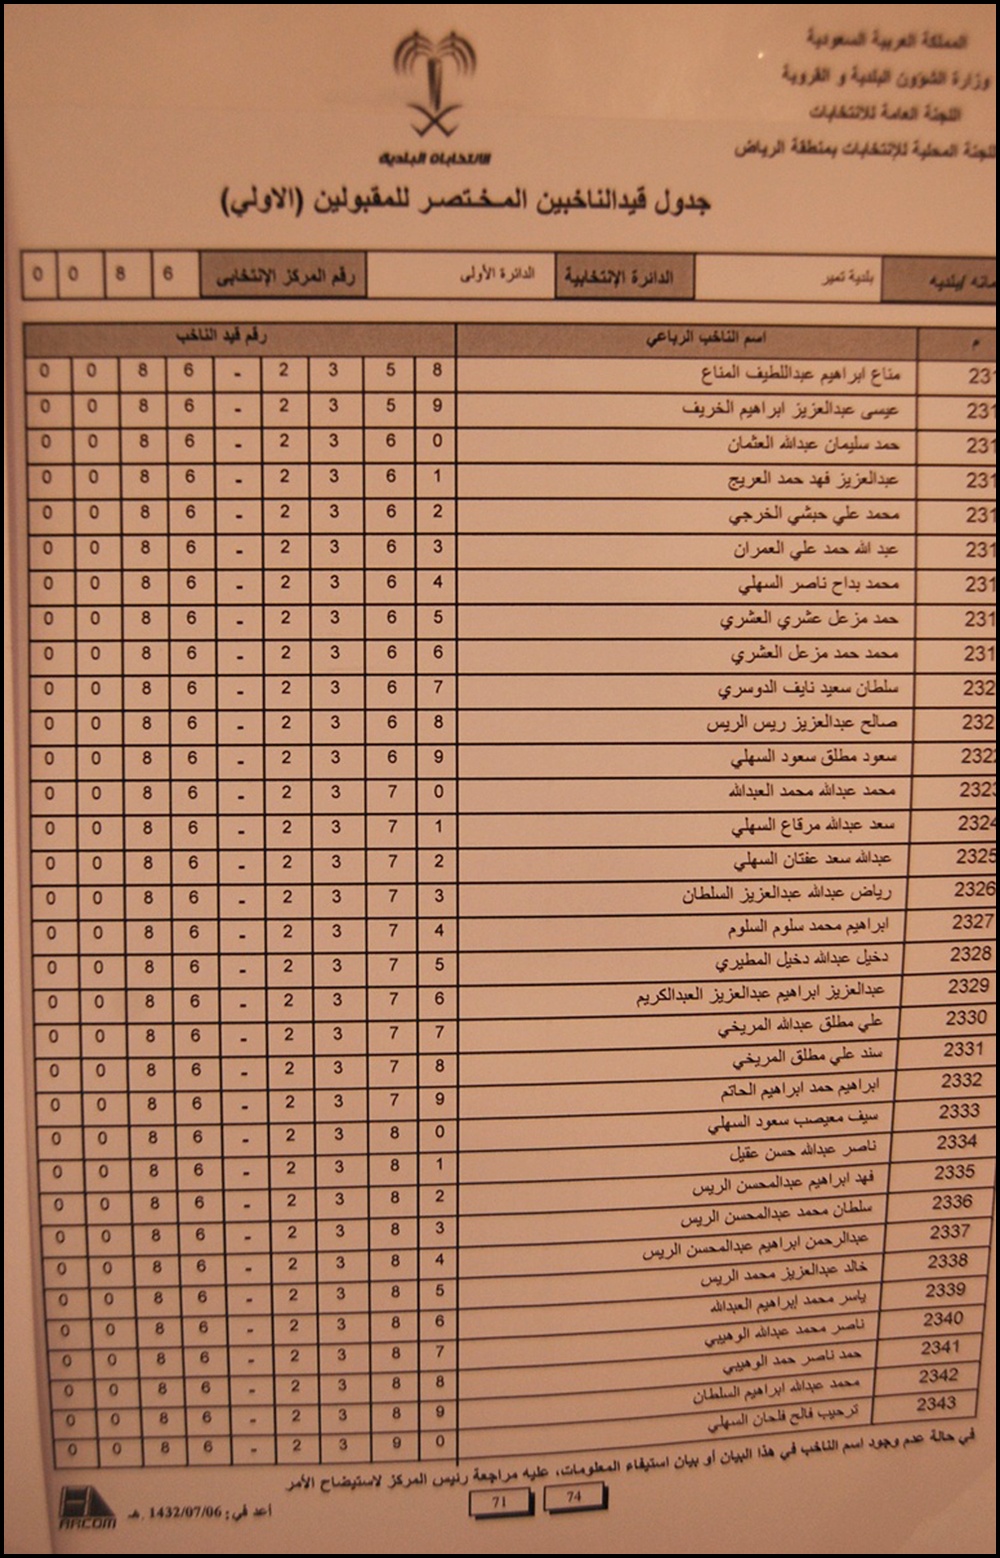 المملكة العربية السعودية
وزارة الشؤون البلدية و القروية
اللجنة العامة للانتخابات
اللجنة المحلية للإنتخابات بمنطقة الرياض
الانتخابات البلدية
جدول قيدالناخبين المختصر للمقبولين (الاولي)
امانه /بلديه بلدية تمير الدائرة الإنتخابية الدائرة الأولى رقم المركز الإنتخابي 0 0 8 6
م اسم الناخب الرباعي رقم قيد الناخب
231 مناع ابراهيم عبداللطيف المناع 0 0 8 6 - 2 3 5 8
231 عيسى عبدالعزيز ابراهيم الخريف 0 0 8 6 - 2 3 5 9
231 حمد سليمان عبدالله العثمان 0 0 8 6 - 2 3 6 0
231 عبدالعزيز فهد حمد العريج 0 0 8 6 - 2 3 6 1
231 محمد علي حبشي الخرجي 0 0 8 6 - 2 3 6 2
231 عبد الله حمد علي العمران 0 0 8 6 - 2 3 6 3
231 محمد بداح ناصر السهلي 0 0 8 6 - 2 3 6 4
231 حمد مزعل عشري العشري 0 0 8 6 - 2 3 6 5
231 محمد حمد مزعل العشري 0 0 8 6 - 2 3 6 6
232 سلطان سعيد نايف الدوسري 0 0 8 6 - 2 3 6 7
232 صالح عبدالعزيز ريس الريس 0 0 8 6 - 2 3 6 8
2322 سعود مطلق سعود السهلي 0 0 8 6 - 2 3 6 9
2323 محمد عبدالله محمد العبدالله 0 0 8 6 - 2 3 7 0
2324 سعد عبدالله مرقاع السهلي 0 0 8 6 - 2 3 7 1
2325 عبدالله سعد عفتان السهلي 0 0 8 6 - 2 3 7 2
2326 رياض عبدالله عبدالعزيز السلطان 0 0 8 6 - 2 3 7 3
2327 ابراهيم محمد سلوم السلوم 0 0 8 6 - 2 3 7 4
2328 دخيل عبدالله دخيل المطيري 0 0 8 6 - 2 3 7 5
2329 عبدالعزيز ابراهيم عبدالعزيز العبدالكريم 0 0 8 6 - 2 3 7 6
2330 علي مطلق عبدالله المريخي 0 0 8 6 - 2 3 7 7
2331 سند علي مطلق المريخي 0 0 8 6 - 2 3 7 8
2332 ابراهيم حمد ابراهيم الحاتم 0 0 8 6 - 2 3 7 9
2333 سيف معيصب سعود السهلي 0 0 8 6 - 2 3 8 0
2334 ناصر عبدالله حسن عقيل 0 0 8 6 - 2 3 8 1
2335 فهد ابراهيم عبدالمحسن الريس 0 0 8 6 - 2 3 8 2
2336 سلطان محمد عبدالمحسن الريس 0 0 8 6 - 2 3 8 3
2337 عبدالرحمن ابراهيم عبدالمحسن الريس 0 0 8 6 - 2 3 8 4
2338 خالد عبدالعزيز محمد الريس 0 0 8 6 - 2 3 8 5
2339 ياسر محمد إبراهيم العبدالله 0 0 8 6 - 2 3 8 6
2340 ناصر محمد عبدالله الوهيبي 0 0 8 6 - 2 3 8 7
2341 حمد ناصر حمد الوهيبي 0 0 8 6 - 2 3 8 8
2342 محمد عبدالله ابراهيم السلطان 0 0 8 6 - 2 3 8 9
2343 ترحيب فالح فلحان السهلي 0 0 8 6 - 2 3 9 0
في حالة عدم وجود اسم الناخب في هذا البيان أو بيان استيفاء المعلومات، عليه مراجعة رئيس المركز لاستيضاح الأمر
74 71
أعد في : 1432/07/06 هـ
ARCOM